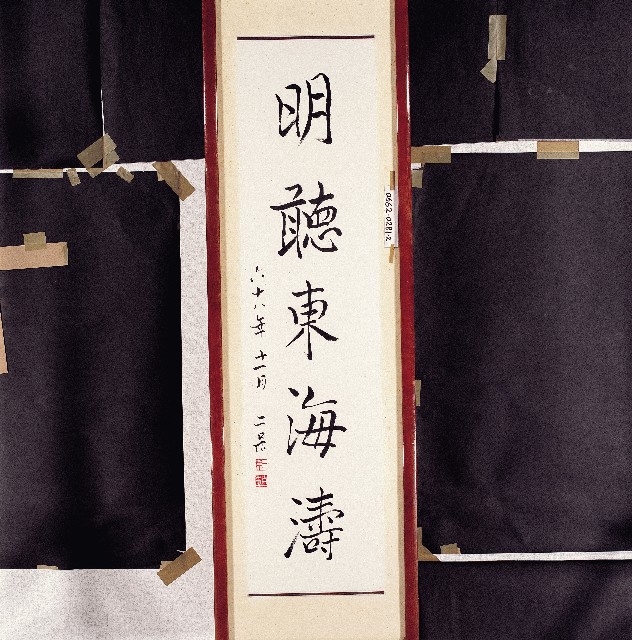 明聽東海濤
六十八年十一月 二呆
0662-0281-2